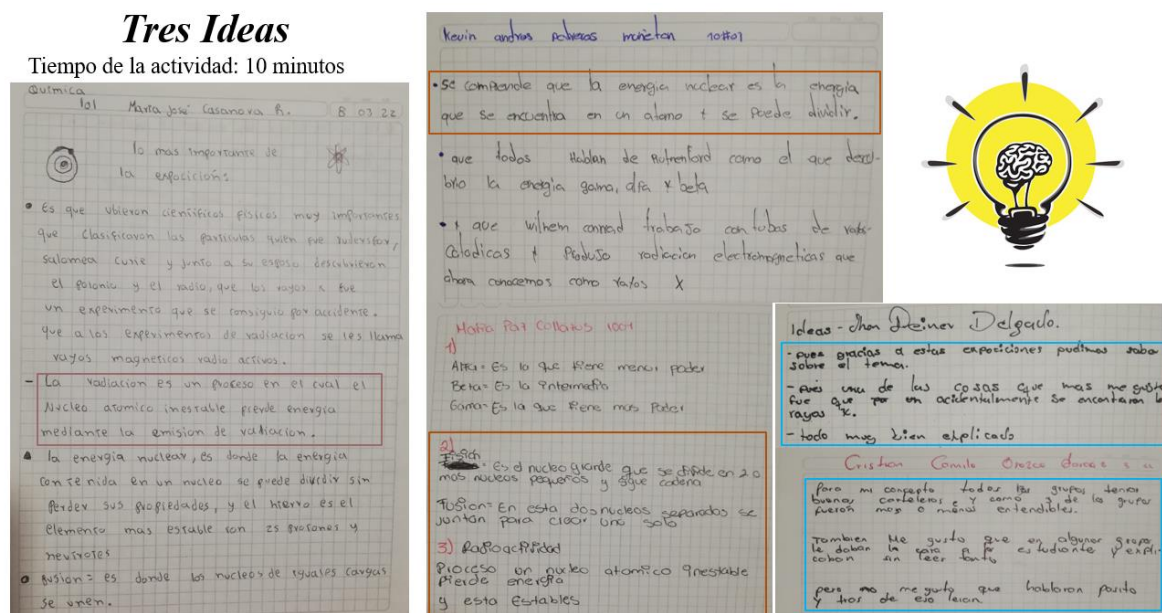 Tres Ideas
Tiempo de la actividad: 10 minutos
Química
101 María José Casanova R. 8 03 22
lo mas importante de
la exposición:
Es que ubieron científicos físicos muy importantes
que clasificaron las partículas quien fue rudersfor,
salomea curie y junto a su esposo descubrieron
el polonio y el radio, que los rayos x fue
un experimento que se consiguio por accidente.
que a los experimentos de radiacion se les llama
rayos magneticos radio activos.
- La radiacion es un proceso en el cual el
Nucleo atomico inestable pierde energia
mediante la emision de radiacion.
la energia nuclear, es donde la energia
contenida en un nucleo se puede dividir sin
perder sus propiedades, y el hierro es el
elemento mas estable con 25 protones y
neutrotes
fusion = es donde los nucleos de iguales cargas
se unen.
Kevin andres 10#01
• se comprende que la energia nuclear es la energia
que se encuentra en un atomo y se puede dividir.
• que todos Hablan de Rutherford como el que descu-
brio la energia gama, alfa y beta
• y que wilhem conrad trabajo con tubos de rayos
Catodicas y Produjo radiacion electromagneticas que
ahora conocemos como rayos X
Maria Paz Collazos 1001
1)
Alfa = Es la que tiene menor poder
Beta = Es la intermedia
Gama = Es la que tiene mas Poder
2)
Fision
= Es el nucleo grande que se divide en 2 o
mas nucleos pequeños y sigue cadena
Fusion = En esta dos nucleos separados se
juntan para crear uno solo
3) Radioactividad
Proceso un nucleo atomico inestable
Pierde energia
y esta Estables
Ideas - Jhon Deiner Delgado.
- pues gracias a estas exposiciones pudimos saber
sobre el tema.
- pues una de las cosas que mas me gusto
fue que por un acidentalmente se encontraron los
rayos x.
- todo muy bien explicado
Cristian Camilo Orozco
Para mi concepto todos los grupos tenian
buenas carteleras y como 3 de los grupos
fueron mas o menos entendibles.
Tambien Me gusto que en algunos grupos
le daban la cara a estudiante y expli-
caban sin leer tanto
pero no me gusto que hablaron pasito
y tras de eso leian